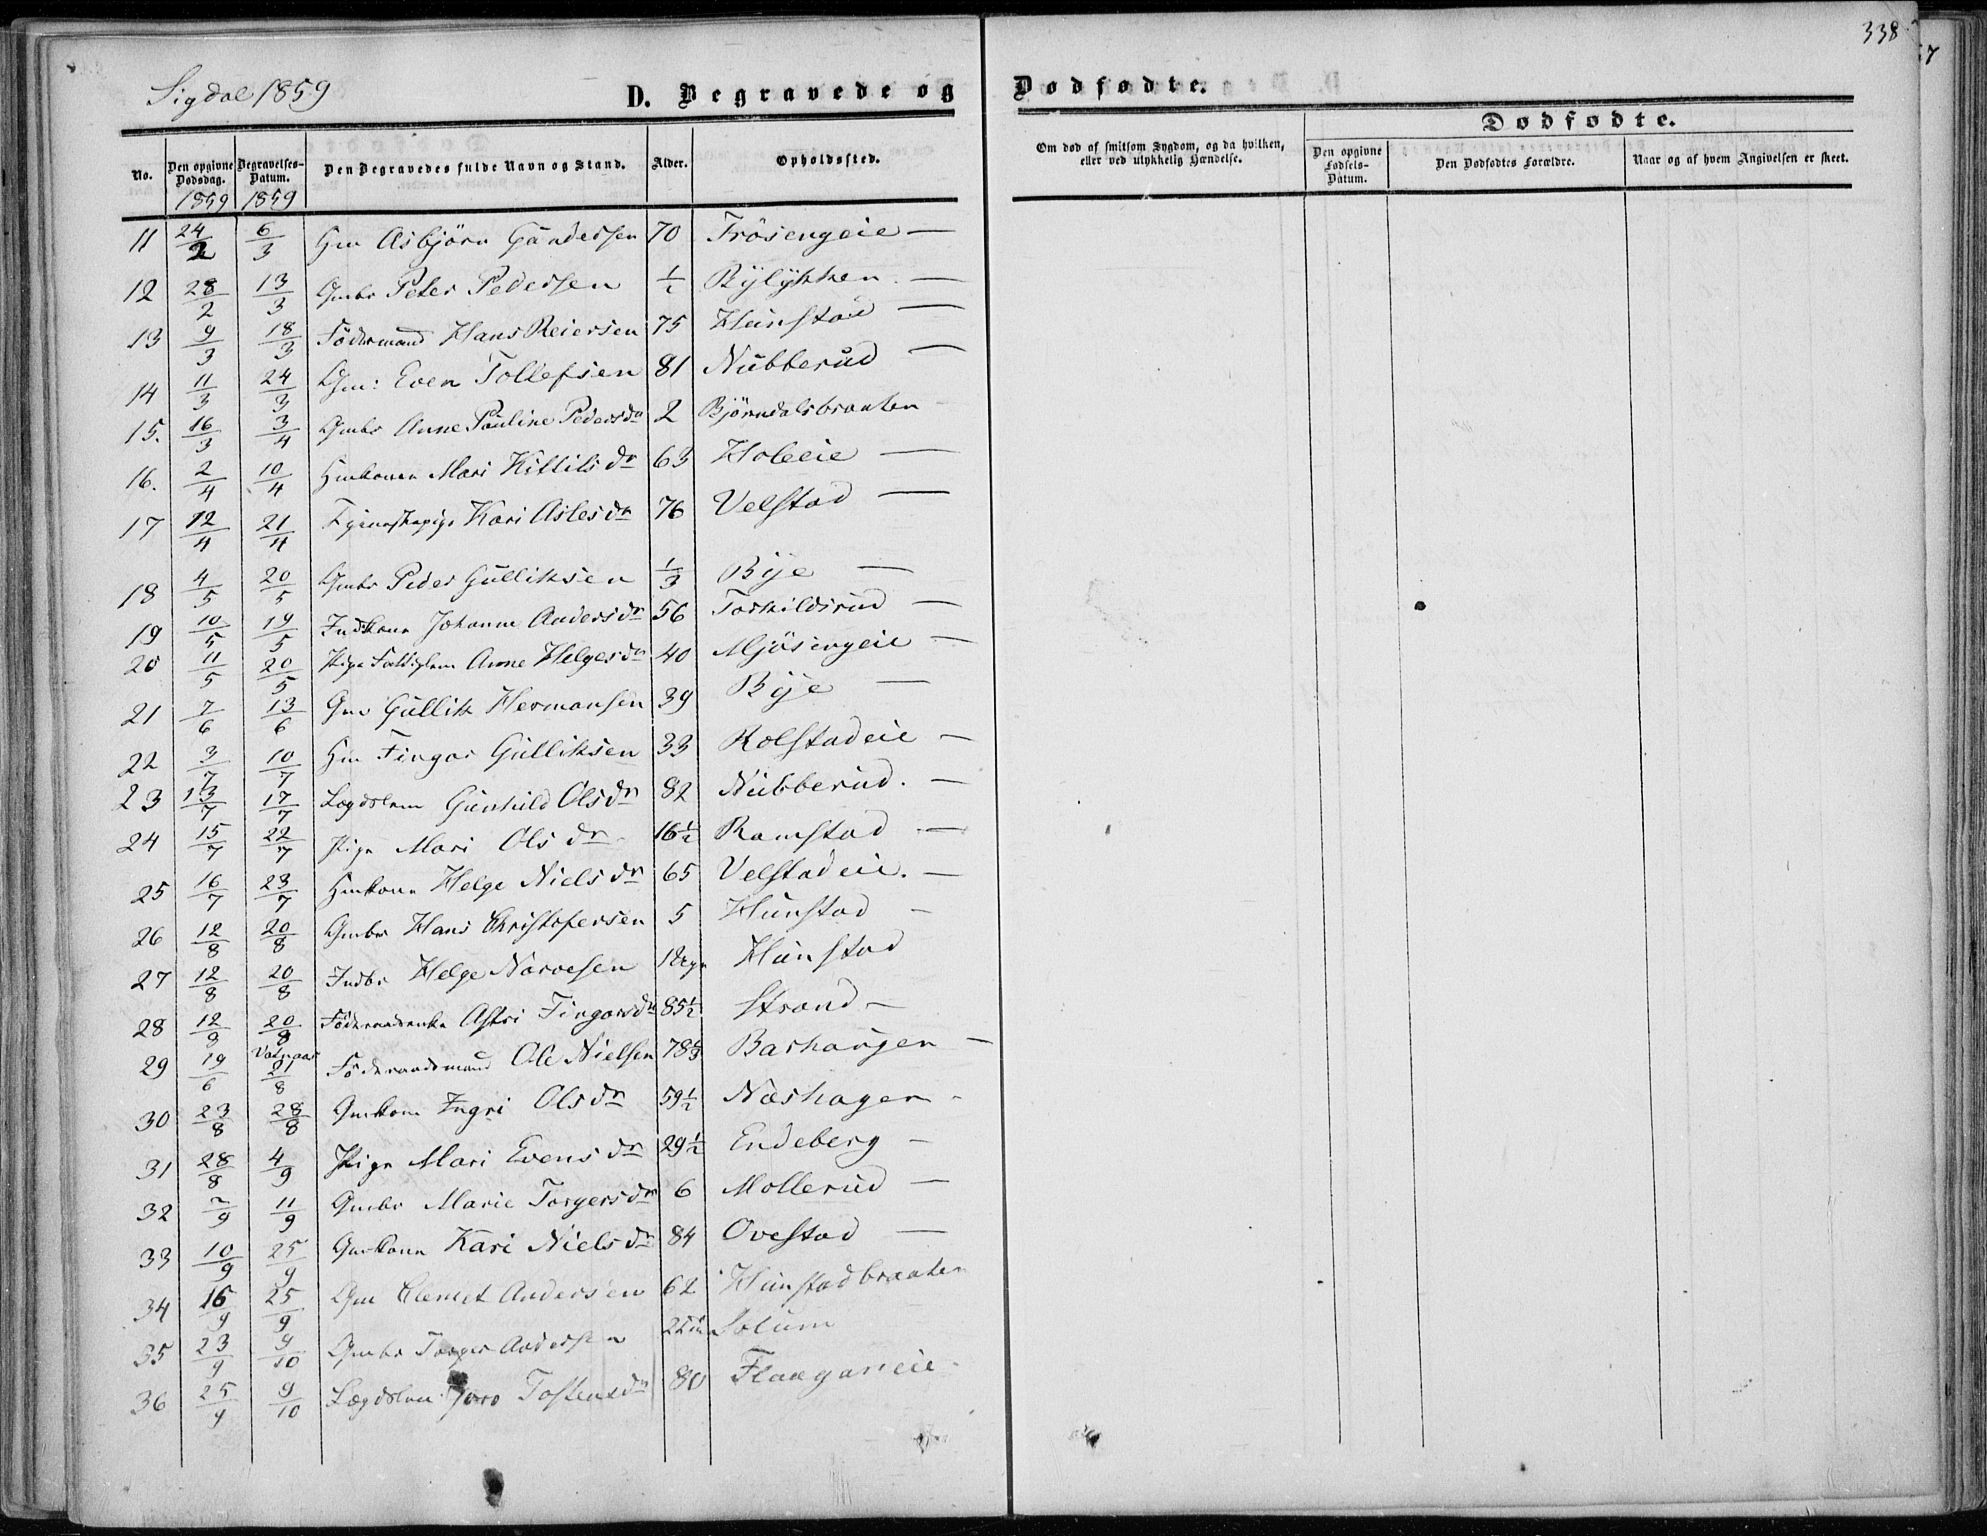 338
Sigdal 1859
D. Begravede og Dødfødte.
Dødfødte.
No.
Den opgivne Dødsdag.
Begravelses-Datum.
Den Begravedes fulde Navn og Stand.
Alder.
Opholdssted.
Om død af smitsom Sygdom, og da hvilken, eller ved ulykkelig Hændelse.
Den opgivne Fødsels-Datum.
Den Dødfødtes Forældre.
Naar og af hvem Angivelsen er skeet.
1859 1859
11 24/2 6/3 Hm Asbjörn Gundersen 70 Frösengeie —
12 28/2 13/3 Gmbr Peter Pedersen ½ Bylykken —
13 9/3 18/3 Födermand Hans Reiersen 75 Hunstad —
14 11/3 24/3 Gm: Even Tollefsen 81 Nubberud —
15. 16/3 3/4 Gmbr Anne Pauline Pedersdr 2 Björndalsbraaten
16. 2/4 10/4 Hmkonen Mari Kittilsdr 63 Holeeie —
17 12/4 21/4 Kari Aslesdr 76 Velstad —
18 4/5 20/5 Gmbr Peder Gulliksen 1/3 Bye —
19 10/5 19/5 Indkone Johanne Andersdr 56 Torkildsrud —
20 11/5 20/5 Pige Fattiglem Anne Helgesdr 40 Mjösengeie —
21 7/6 13/6 Gm Gullik Hermansen 39 Bye —
22 3/7 10/7 Hm Fingar Gulliksen 33 Kolstadeie —
23 13/7 17/7 Lægdslem Gunhild Olsdr 82 Nubberud. —
24 15/7 22/7 Pige Mari Olsdr 16½ Ramstad —
25 16/7 23/7 Hmkone Helge Nielsdr 65 Velstadeie. —
26 12/8 20/8 Gmbr Hans Christofersen 5 Hunstad —
27 12/8 20/8 Indbr Helge Narvesen 1 Hunstad
28 12/8 20/8 Föderaadsenke Astri Fingarsdr 85½ Strand —
29 19/6 21/8 Föderaadsmand Ole Nielsen 78 Barhaugen —
30 23/8 28/8 Gmkone Ingri Olsdr 59½ Næshagen
31 28/8 4/9 Pige Mari Evensdr 29½ Endeberg —
32 2/9 11/9 Gmbr Marie Torgersdr 6 Mollerud —
33 10/9 25/9 Gmkone Kari Nielsdr 84 Ovestad —
34 16/9 25/9 Gm Clemet Andersen 62 Hunstadbraaten
35 23/9 9/10 Gmbr Torger Andersen Solum
36 25/9 9/10 Lægdslem Joro Tostensdr 80 Flaaganeie